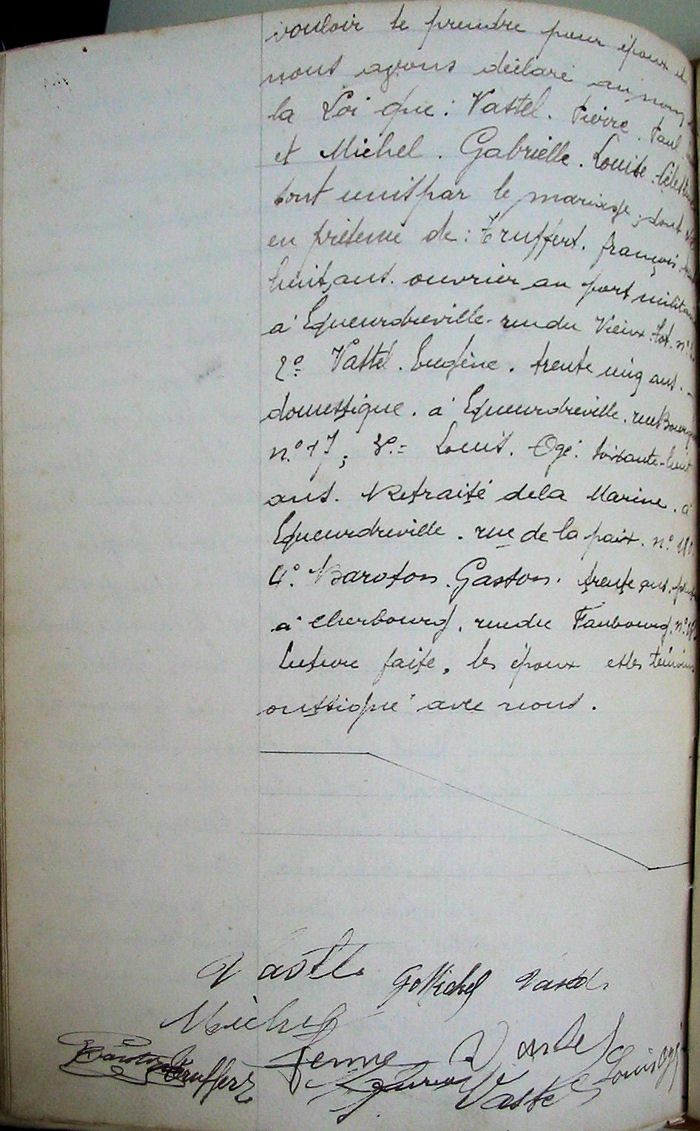 vouloir se prendre pour époux et
nous avons déclaré au nom de
la Loi que: Vastel. Pierre. Paul
et Michel. Gabrielle. Louise. Céles
sont unis par le mariage, dont
en présence de: Truffert. françois
huit, ans. ouvrier au port militai
à Equeurdreville. rue du Vieux. n°
2° Vastel. Eugène. trente cinq ans.
domestique. à Equeurdreville. rue
n° 17; 3°= Louis. Ogé. soixante-huit
ans. Retraité de la Marine. à
Equeurdreville. rue de la paix. n°
4° Baroton. Gaston. trente ans.
à Cherbourg. rue du Faubourg. n°
Lecture faite, les époux et les témoins
ont signé avec nous.
Vastel G Michel Vastel
Michel
Truffert femme Vastel Louis Ogé
Vastel